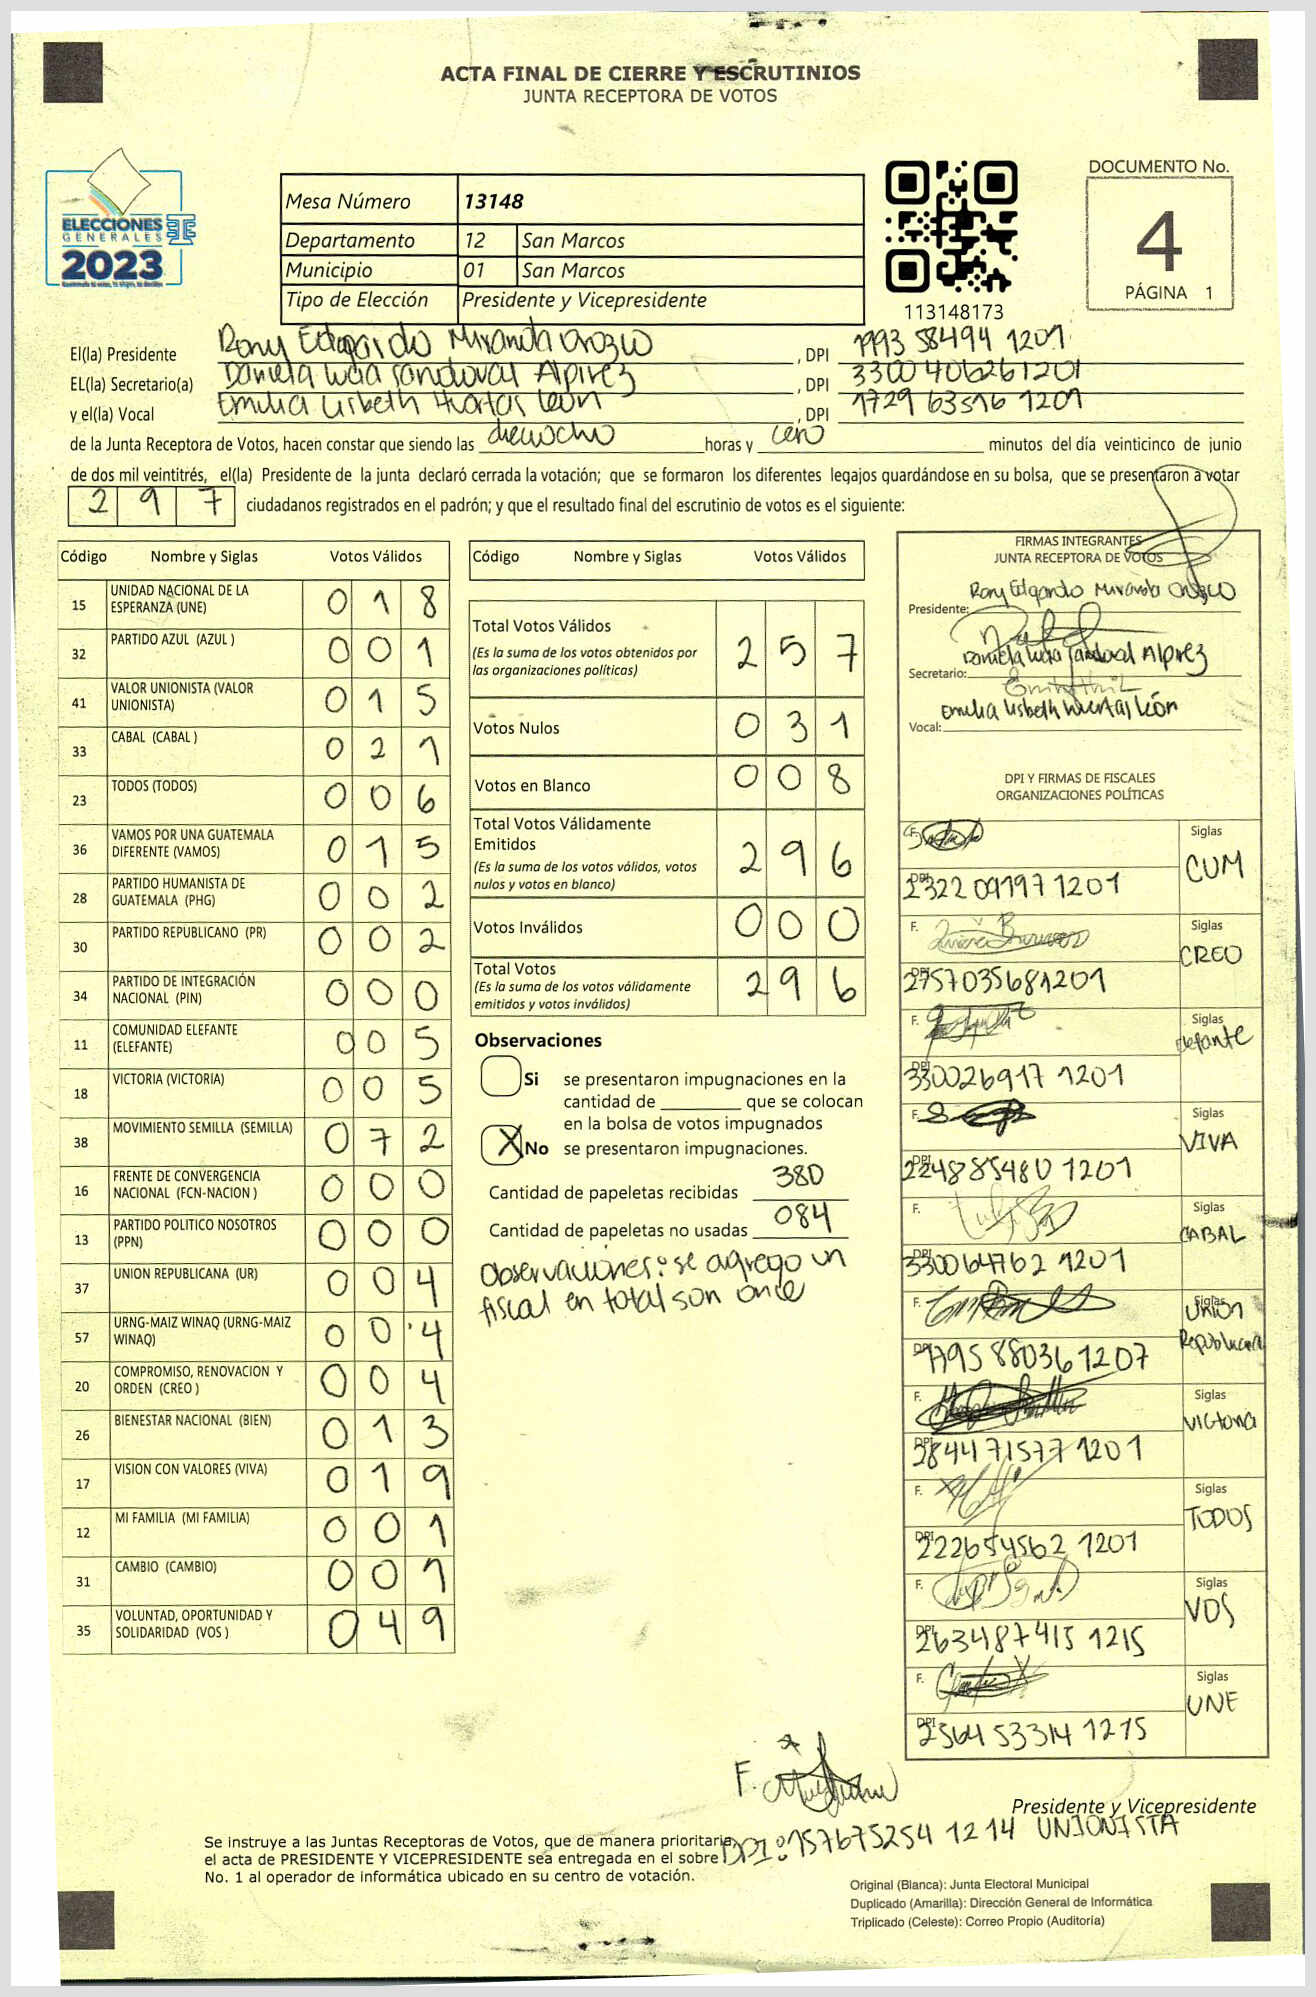 ACTA FINAL DE CIERRE Y ESCRUTINIOS
JUNTA RECEPTORA DE VOTOS
ELECCIONES
GENERALES
2023
Mesa Número 13148
Departamento 12 San Marcos
Municipio 01 San Marcos
Tipo de Elección Presidente y Vicepresidente
113148173
DOCUMENTO No.
4
PÁGINA 1
El(la) Presidente Rony Edgardo Miranda Orozco , DPI 1993 58494 1201
EL(la) Secretario(a) Daniela Lucia Sandoval Alpirez , DPI 3300 406261201
y el(la) Vocal Emilia Lisbeth Huertas León , DPI 1729 63516 1201
de la Junta Receptora de Votos, hacen constar que siendo las dieciocho horas y cero minutos del día veinticinco de junio
de dos mil veintitrés, el(la) Presidente de la junta declaró cerrada la votación; que se formaron los diferentes legajos guardándose en su bolsa, que se presentaron a votar
297 ciudadanos registrados en el padrón; y que el resultado final del escrutinio de votos es el siguiente:
Código Nombre y Siglas Votos Válidos
15 UNIDAD NACIONAL DE LA ESPERANZA (UNE) 018
32 PARTIDO AZUL (AZUL ) 001
41 VALOR UNIONISTA (VALOR UNIONISTA) 015
33 CABAL (CABAL ) 021
23 TODOS (TODOS) 006
36 VAMOS POR UNA GUATEMALA DIFERENTE (VAMOS) 015
28 PARTIDO HUMANISTA DE GUATEMALA (PHG) 002
30 PARTIDO REPUBLICANO (PR) 002
34 PARTIDO DE INTEGRACIÓN NACIONAL (PIN) 000
11 COMUNIDAD ELEFANTE (ELEFANTE) 005
18 VICTORIA (VICTORIA) 005
38 MOVIMIENTO SEMILLA (SEMILLA) 072
16 FRENTE DE CONVERGENCIA NACIONAL (FCN-NACION ) 000
13 PARTIDO POLITICO NOSOTROS (PPN) 000
37 UNION REPUBLICANA (UR) 004
57 URNG-MAIZ WINAQ (URNG-MAIZ WINAQ) 004
20 COMPROMISO, RENOVACION Y ORDEN (CREO ) 004
26 BIENESTAR NACIONAL (BIEN) 013
17 VISION CON VALORES (VIVA) 019
12 MI FAMILIA (MI FAMILIA) 001
31 CAMBIO (CAMBIO) 001
35 VOLUNTAD, OPORTUNIDAD Y SOLIDARIDAD (VOS ) 049
Código Nombre y Siglas Votos Válidos
Total Votos Válidos 257
(Es la suma de los votos obtenidos por
las organizaciones políticas)
Votos Nulos 031
Votos en Blanco 008
Total Votos Válidamente
Emitidos 296
(Es la suma de los votos válidos, votos
nulos y votos en blanco)
Votos Inválidos 000
Total Votos 296
(Es la suma de los votos válidamente
emitidos y votos inválidos)
Observaciones
Si se presentaron impugnaciones en la
cantidad de ________ que se colocan
en la bolsa de votos impugnados
X No se presentaron impugnaciones.
Cantidad de papeletas recibidas 380
Cantidad de papeletas no usadas 084
Observaciones: se agrego un
fiscal en total son once
FIRMAS INTEGRANTES
JUNTA RECEPTORA DE VOTOS
Rony Edgardo Miranda Orozco
Presidente:
Daniela Lucia Sandoval Alpirez
Secretario:
Emilia Lisbeth Huertas León
Vocal:
DPI Y FIRMAS DE FISCALES
ORGANIZACIONES POLÍTICAS
F. Siglas CUM
DPI 2322 09197 1201
F. Siglas CREO
DPI 2757035681201
F. Siglas elefante
DPI 330026917 1201
F. Siglas VIVA
DPI 224885480 1201
F. Siglas CABAL
DPI 330064762 1201
F. Siglas Union Republicana
DPI 1795 88036 1207
F. Siglas Victoria
DPI 284471577 1201
F. Siglas TODOS
DPI 222654562 1201
F. Siglas VOS
DPI 263487415 1215
F. Siglas UNE
DPI 2564 53314 1215
F.
DPI: 157675254 1214 UNIONISTA
Presidente y Vicepresidente
Se instruye a las Juntas Receptoras de Votos, que de manera prioritaria,
el acta de PRESIDENTE Y VICEPRESIDENTE sea entregada en el sobre
No. 1 al operador de informática ubicado en su centro de votación.
Original (Blanca): Junta Electoral Municipal
Duplicado (Amarilla): Dirección General de Informática
Triplicado (Celeste): Correo Propio (Auditoría)